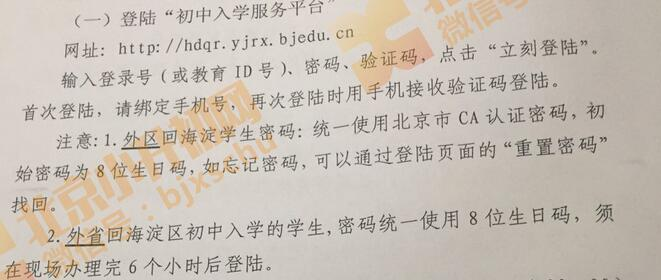 （一）登陆“初中入学服务平台”
网址：http://hdqr.yjrx.bjedu.cn
输入登录号（或教育 ID 号）、密码、验证码，点击“立刻登陆”。
首次登陆，请绑定手机号，再次登陆时用手机接收验证码登陆。
注意：1.外区回海淀学生密码：统一使用北京市 CA 认证密码，初
始密码为 8 位生日码，如忘记密码，可以通过登陆页面的“重置密码”
找回。
2.外省回海淀区初中入学的学生,密码统一使用 8 位生日码，须
在现场办理完 6 个小时后登陆。
北京小升初网
微信号：bjxschu